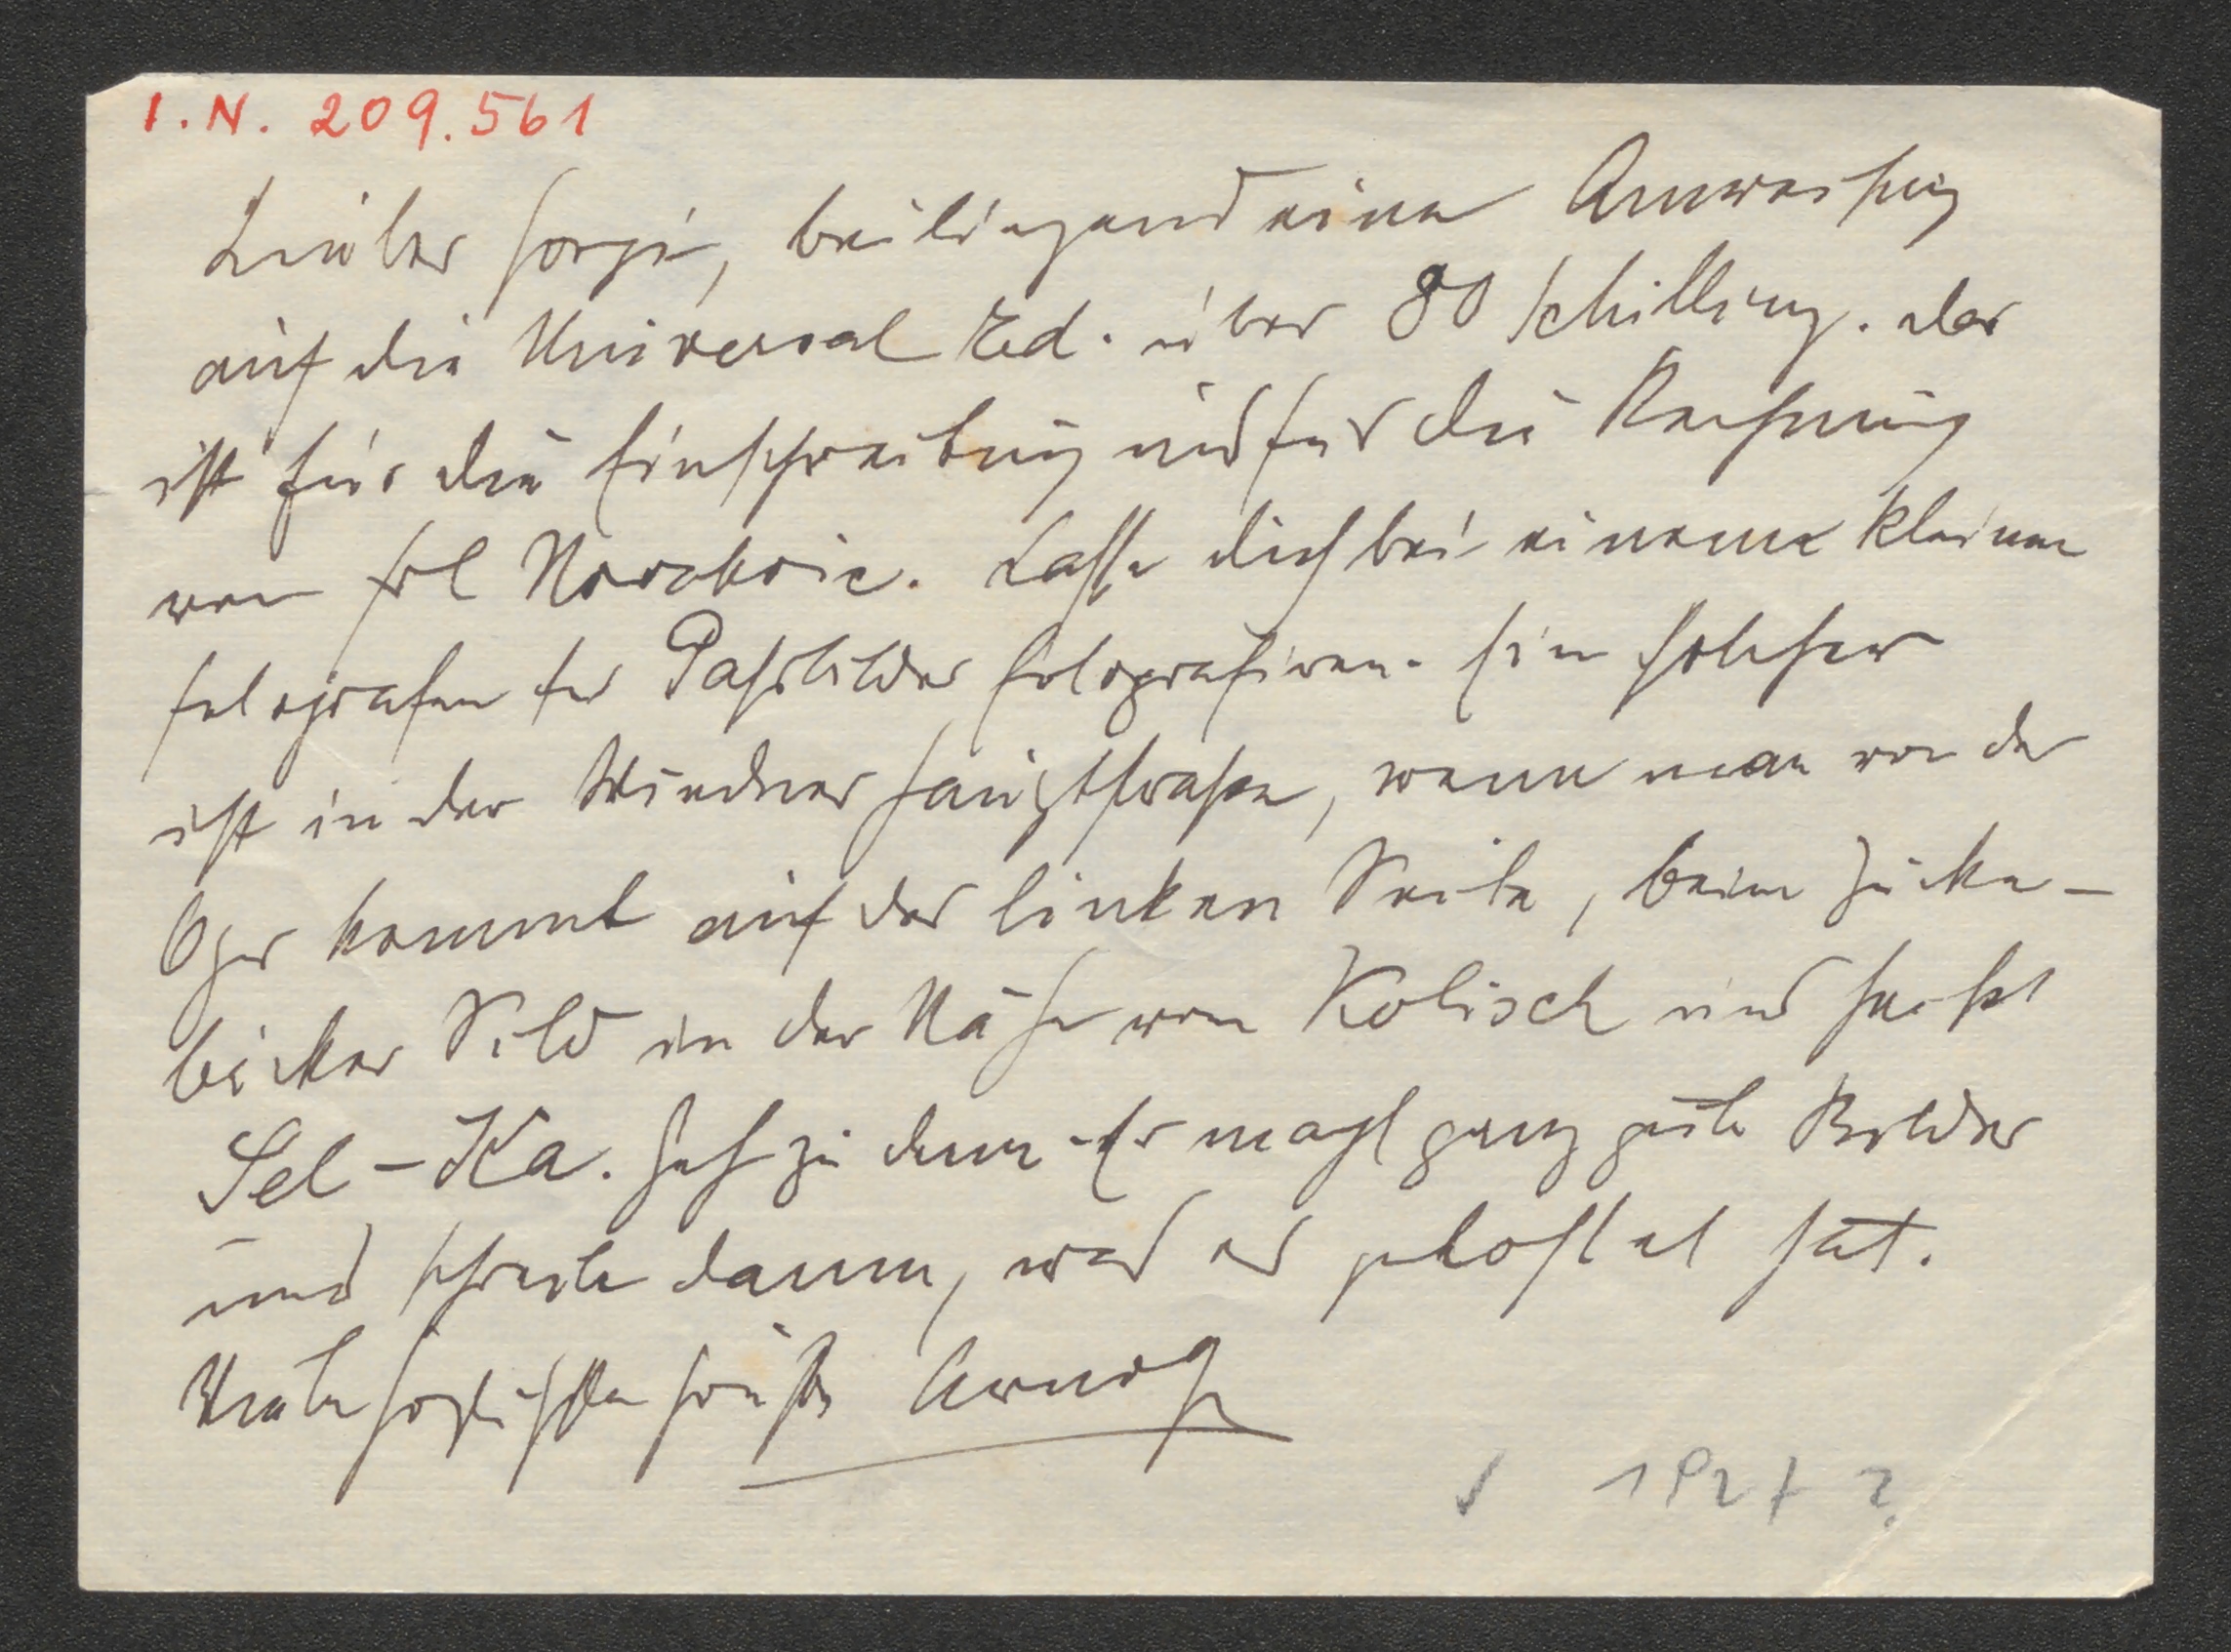 I.N. 209.561
Lieber Görgi, beiliegend eine Anweisung
auf die Universal Ed. über 80 Schilling. das
ist für die Einschreibung und für die Rechnung
von Frl Novakovic. Lasse dich bei einem kleinen
Fotografen für Passbilder fotografiren. Ein solcher
ist in der Wiedner Hauptstrasse, wenn man von der
Oper kommt auf der linken Seite, beim Zucker-
bäcker Sild in der Nähe von Kolisch und heisst
Sel-Ka. Geh zu dem. Er macht ganz gute Bilder
und schreibe dann, was es gekostet hat.
Viele herzlichste Grüße Arnold
1927 ?